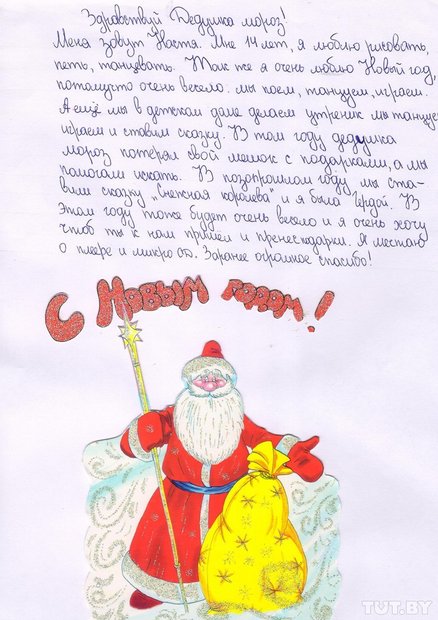 Здравствуй Дедушка мороз!
Меня зовут Настя. Мне 14 лет, я люблю рисовать,
петь, танцевать. Так же я очень люблю Новый год,
потомусто очень весело: мы поем, танцуем, играем.
А ещё мы в детском доме делаем утреник мы танцуе
играем и ставим сказку. В том году дедушка
мороз потерял свой мешок с подарками, а мы
помогали искать. В позопрошлом году мы ста-
вили сказку "снежная королева" и я была Гердой. В
этом году тоже будет очень весело и я очень хочу
чтоб ты к нам пришел и пренес подарки. Я мечтаю
о плеере и микро СD. Заранее огромное спасибо!
С Новым годом!
TUT.BY